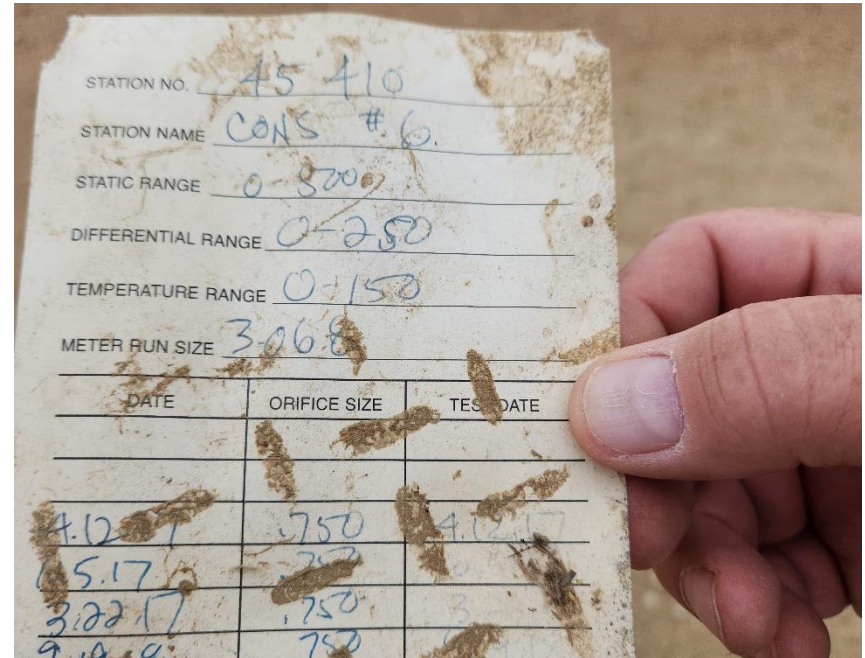 STATION NO. 45 410
STATION NAME CONS #6.
STATIC RANGE 0-500
DIFFERENTIAL RANGE 0-250
TEMPERATURE RANGE 0-150
METER RUN SIZE 3.068
DATE ORIFICE SIZE TEST DATE
4.12 .750 4.12.17
5.17
3.22.17 .750 3
750